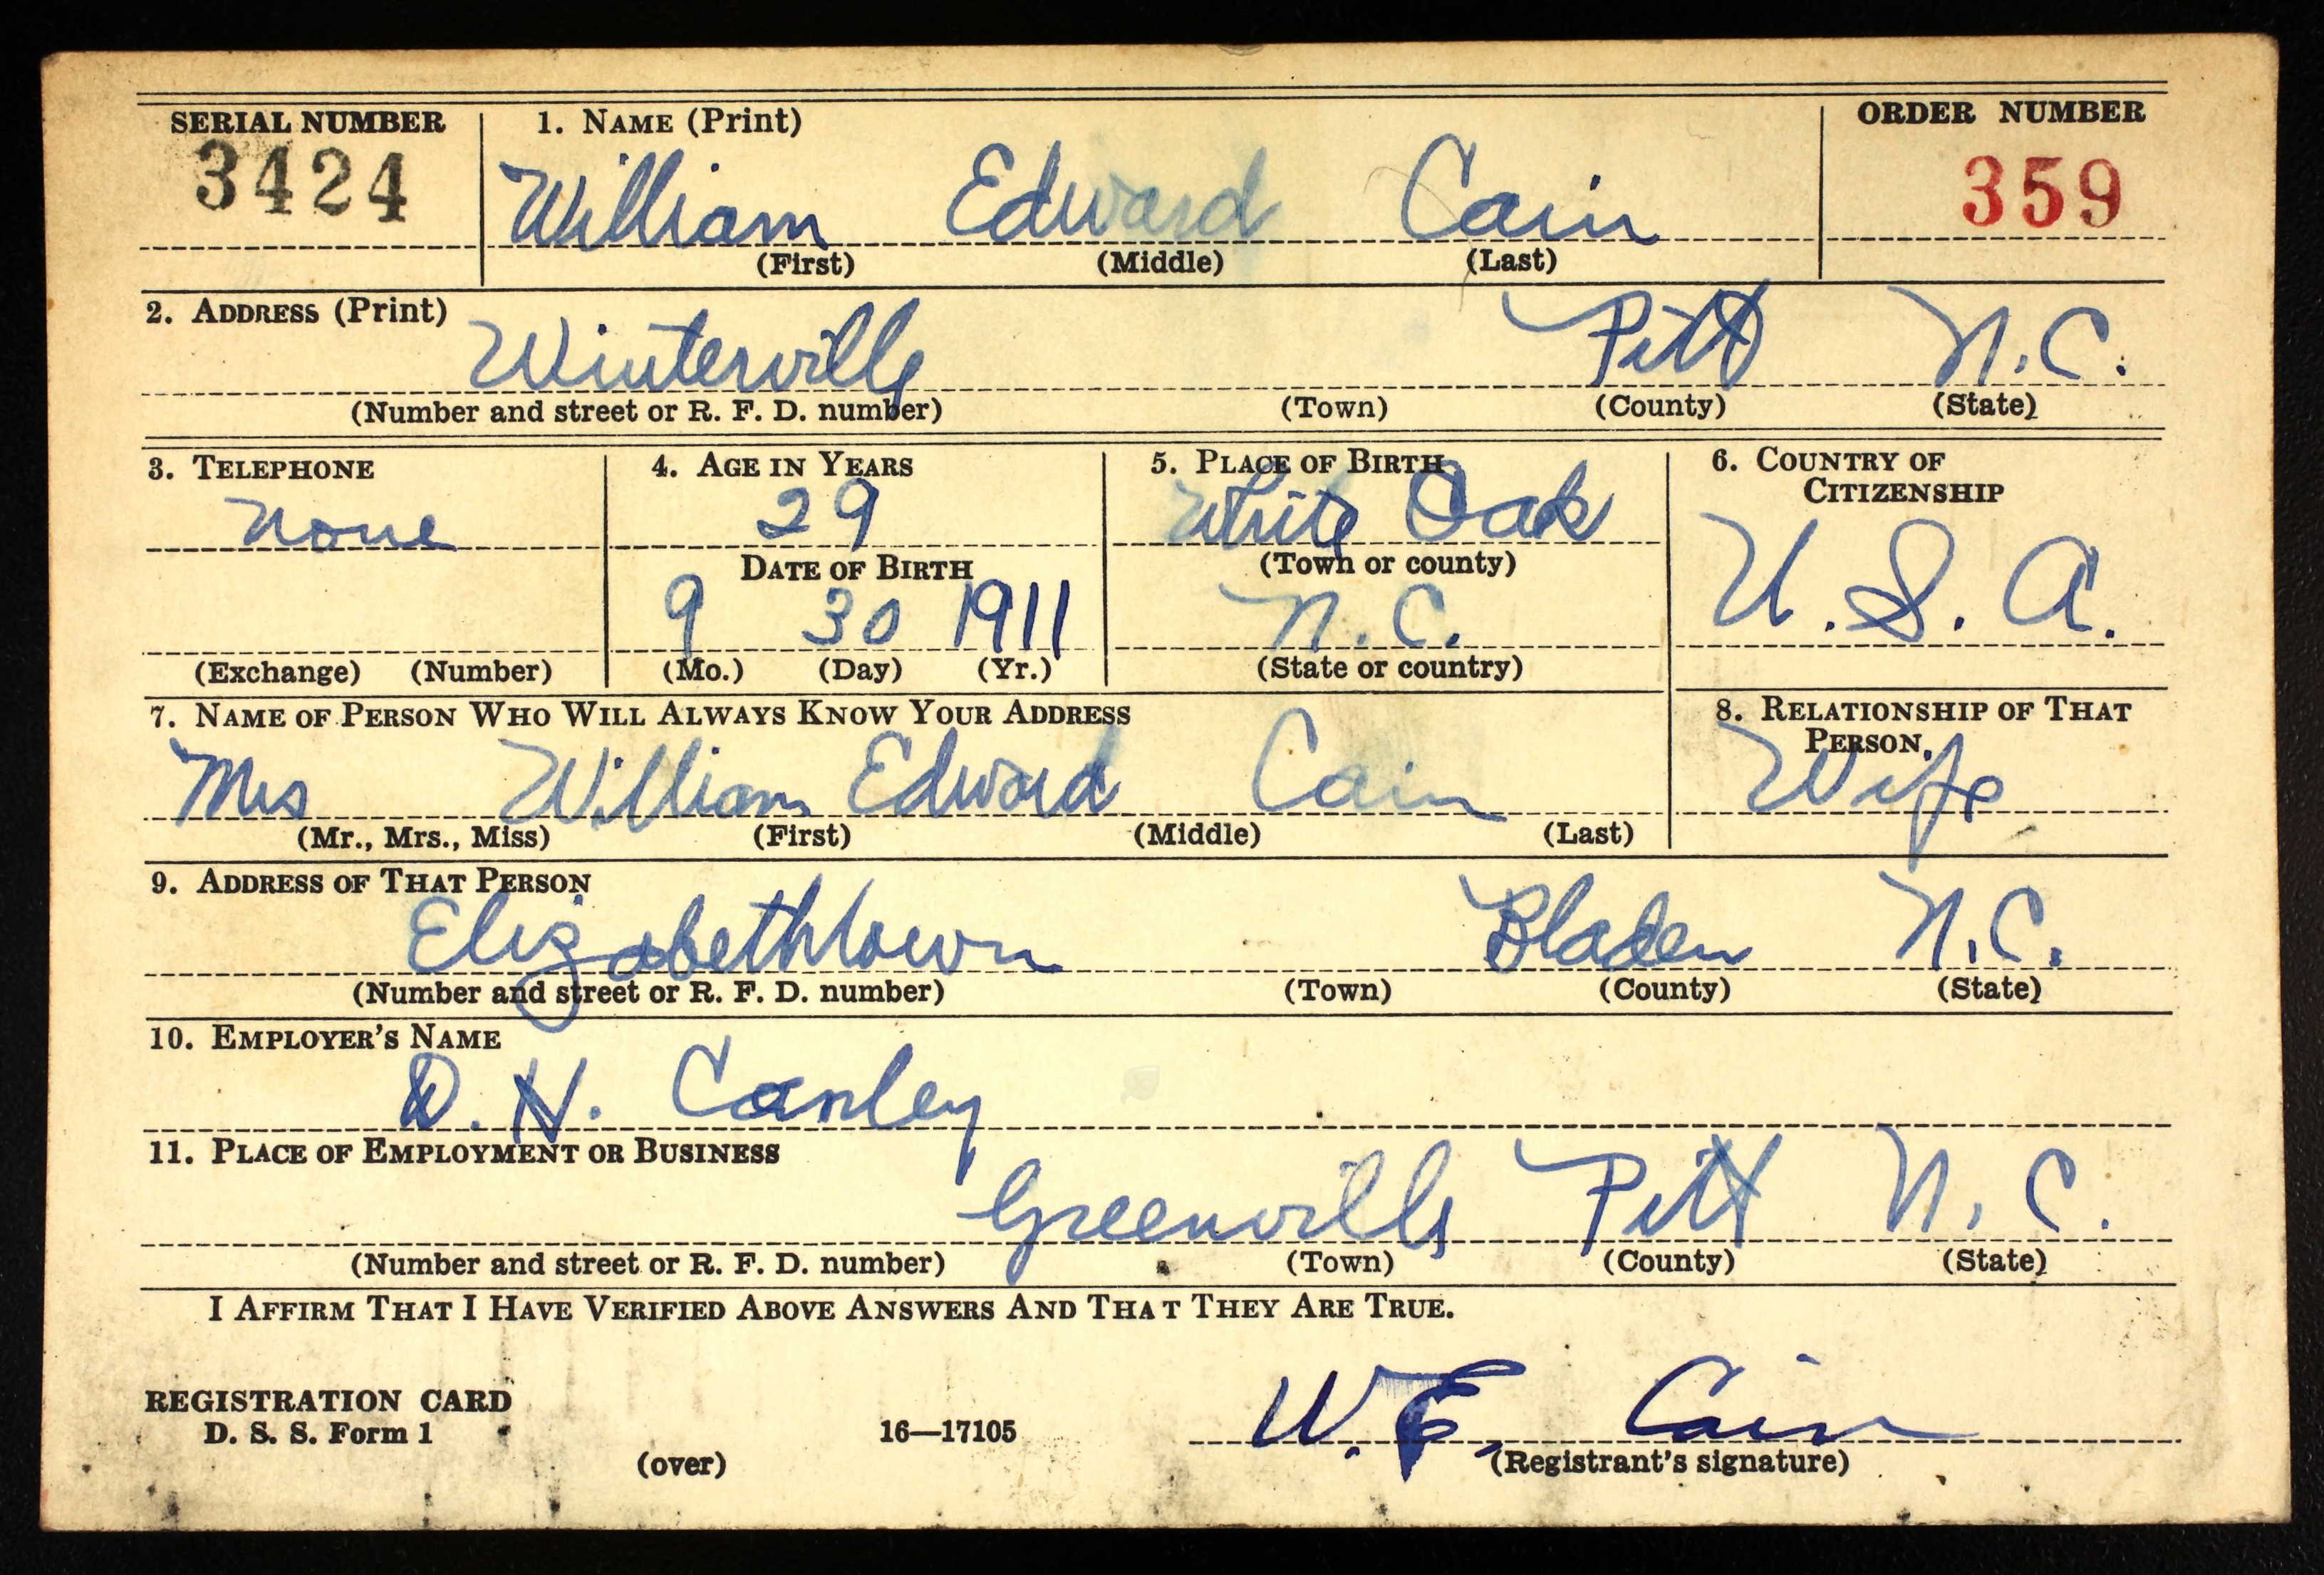 SERIAL NUMBER 1. NAME (Print) ORDER NUMBER
3424 William Edward Cain 359
(First) (Middle) (Last)
2. ADDRESS (Print)
Winterville Pitt N.C.
(Number and street or R. F. D. number) (Town) (County) (State)
3. TELEPHONE 4. AGE IN YEARS 5. PLACE OF BIRTH 6. COUNTRY OF CITIZENSHIP
None 29 White Oak U. S. A.
DATE OF BIRTH (Town or county)
9 30 1911 N.C.
(Exchange) (Number) (Mo.) (Day) (Yr.) (State or country)
7. NAME OF PERSON WHO WILL ALWAYS KNOW YOUR ADDRESS 8. RELATIONSHIP OF THAT PERSON
Mrs William Edward Cain Wife
(Mr., Mrs., Miss) (First) (Middle) (Last)
9. ADDRESS OF THAT PERSON
Elizabethtown Bladen N.C.
(Number and street or R. F. D. number) (Town) (County) (State)
10. EMPLOYER'S NAME
D. H. Conley
11. PLACE OF EMPLOYMENT OR BUSINESS
Greenville Pitt N. C.
(Number and street or R. F. D. number) (Town) (County) (State)
I AFFIRM THAT I HAVE VERIFIED ABOVE ANSWERS AND THAT THEY ARE TRUE.
REGISTRATION CARD
D. S. S. Form 1 16—17105 W. E. Cain
(over) (Registrant's signature)